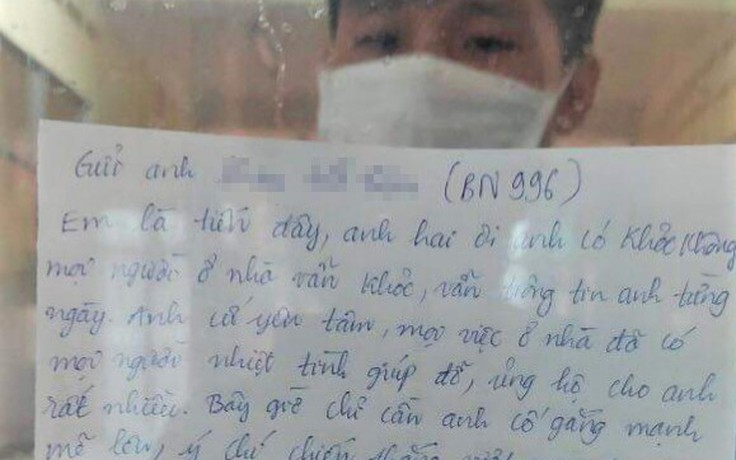 Gửi anh (BN 996)
Em là tiến đây, anh hai ơi anh có khỏe không
mọi người ở nhà vẫn khỏe, vẫn trông tin anh từng
ngày. Anh cứ yên tâm, mọi việc ở nhà đã có
mọi người nhiệt tình giúp đỡ, ủng hộ cho anh
rất nhiều. Bây giờ chỉ cần anh cố gắng mạnh
mẽ lên, ý chí chiến thắng